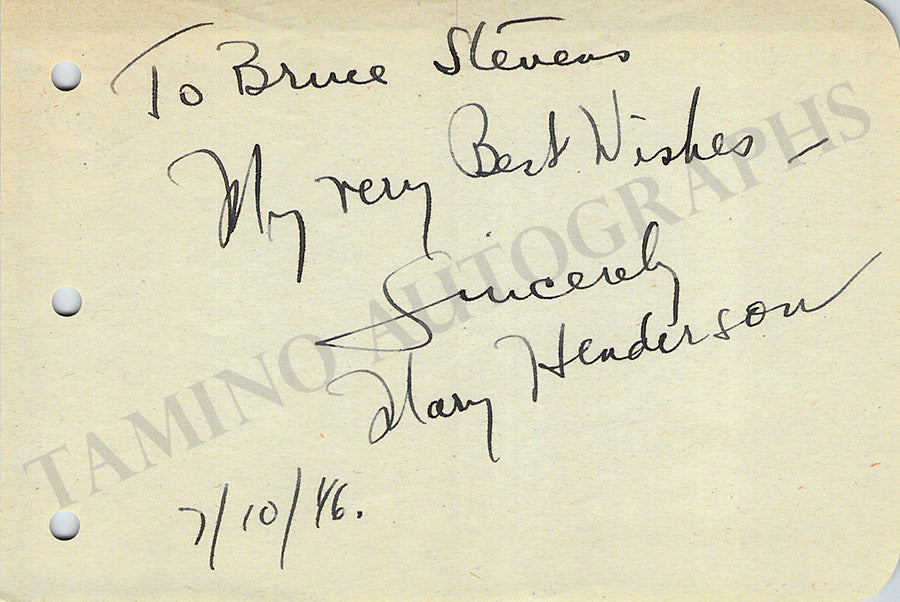 To Bruce Stevens
My very Best Wishes –
Sincerely
Mary Henderson
7/10/46.
TAMINO AUTOGRAPHS